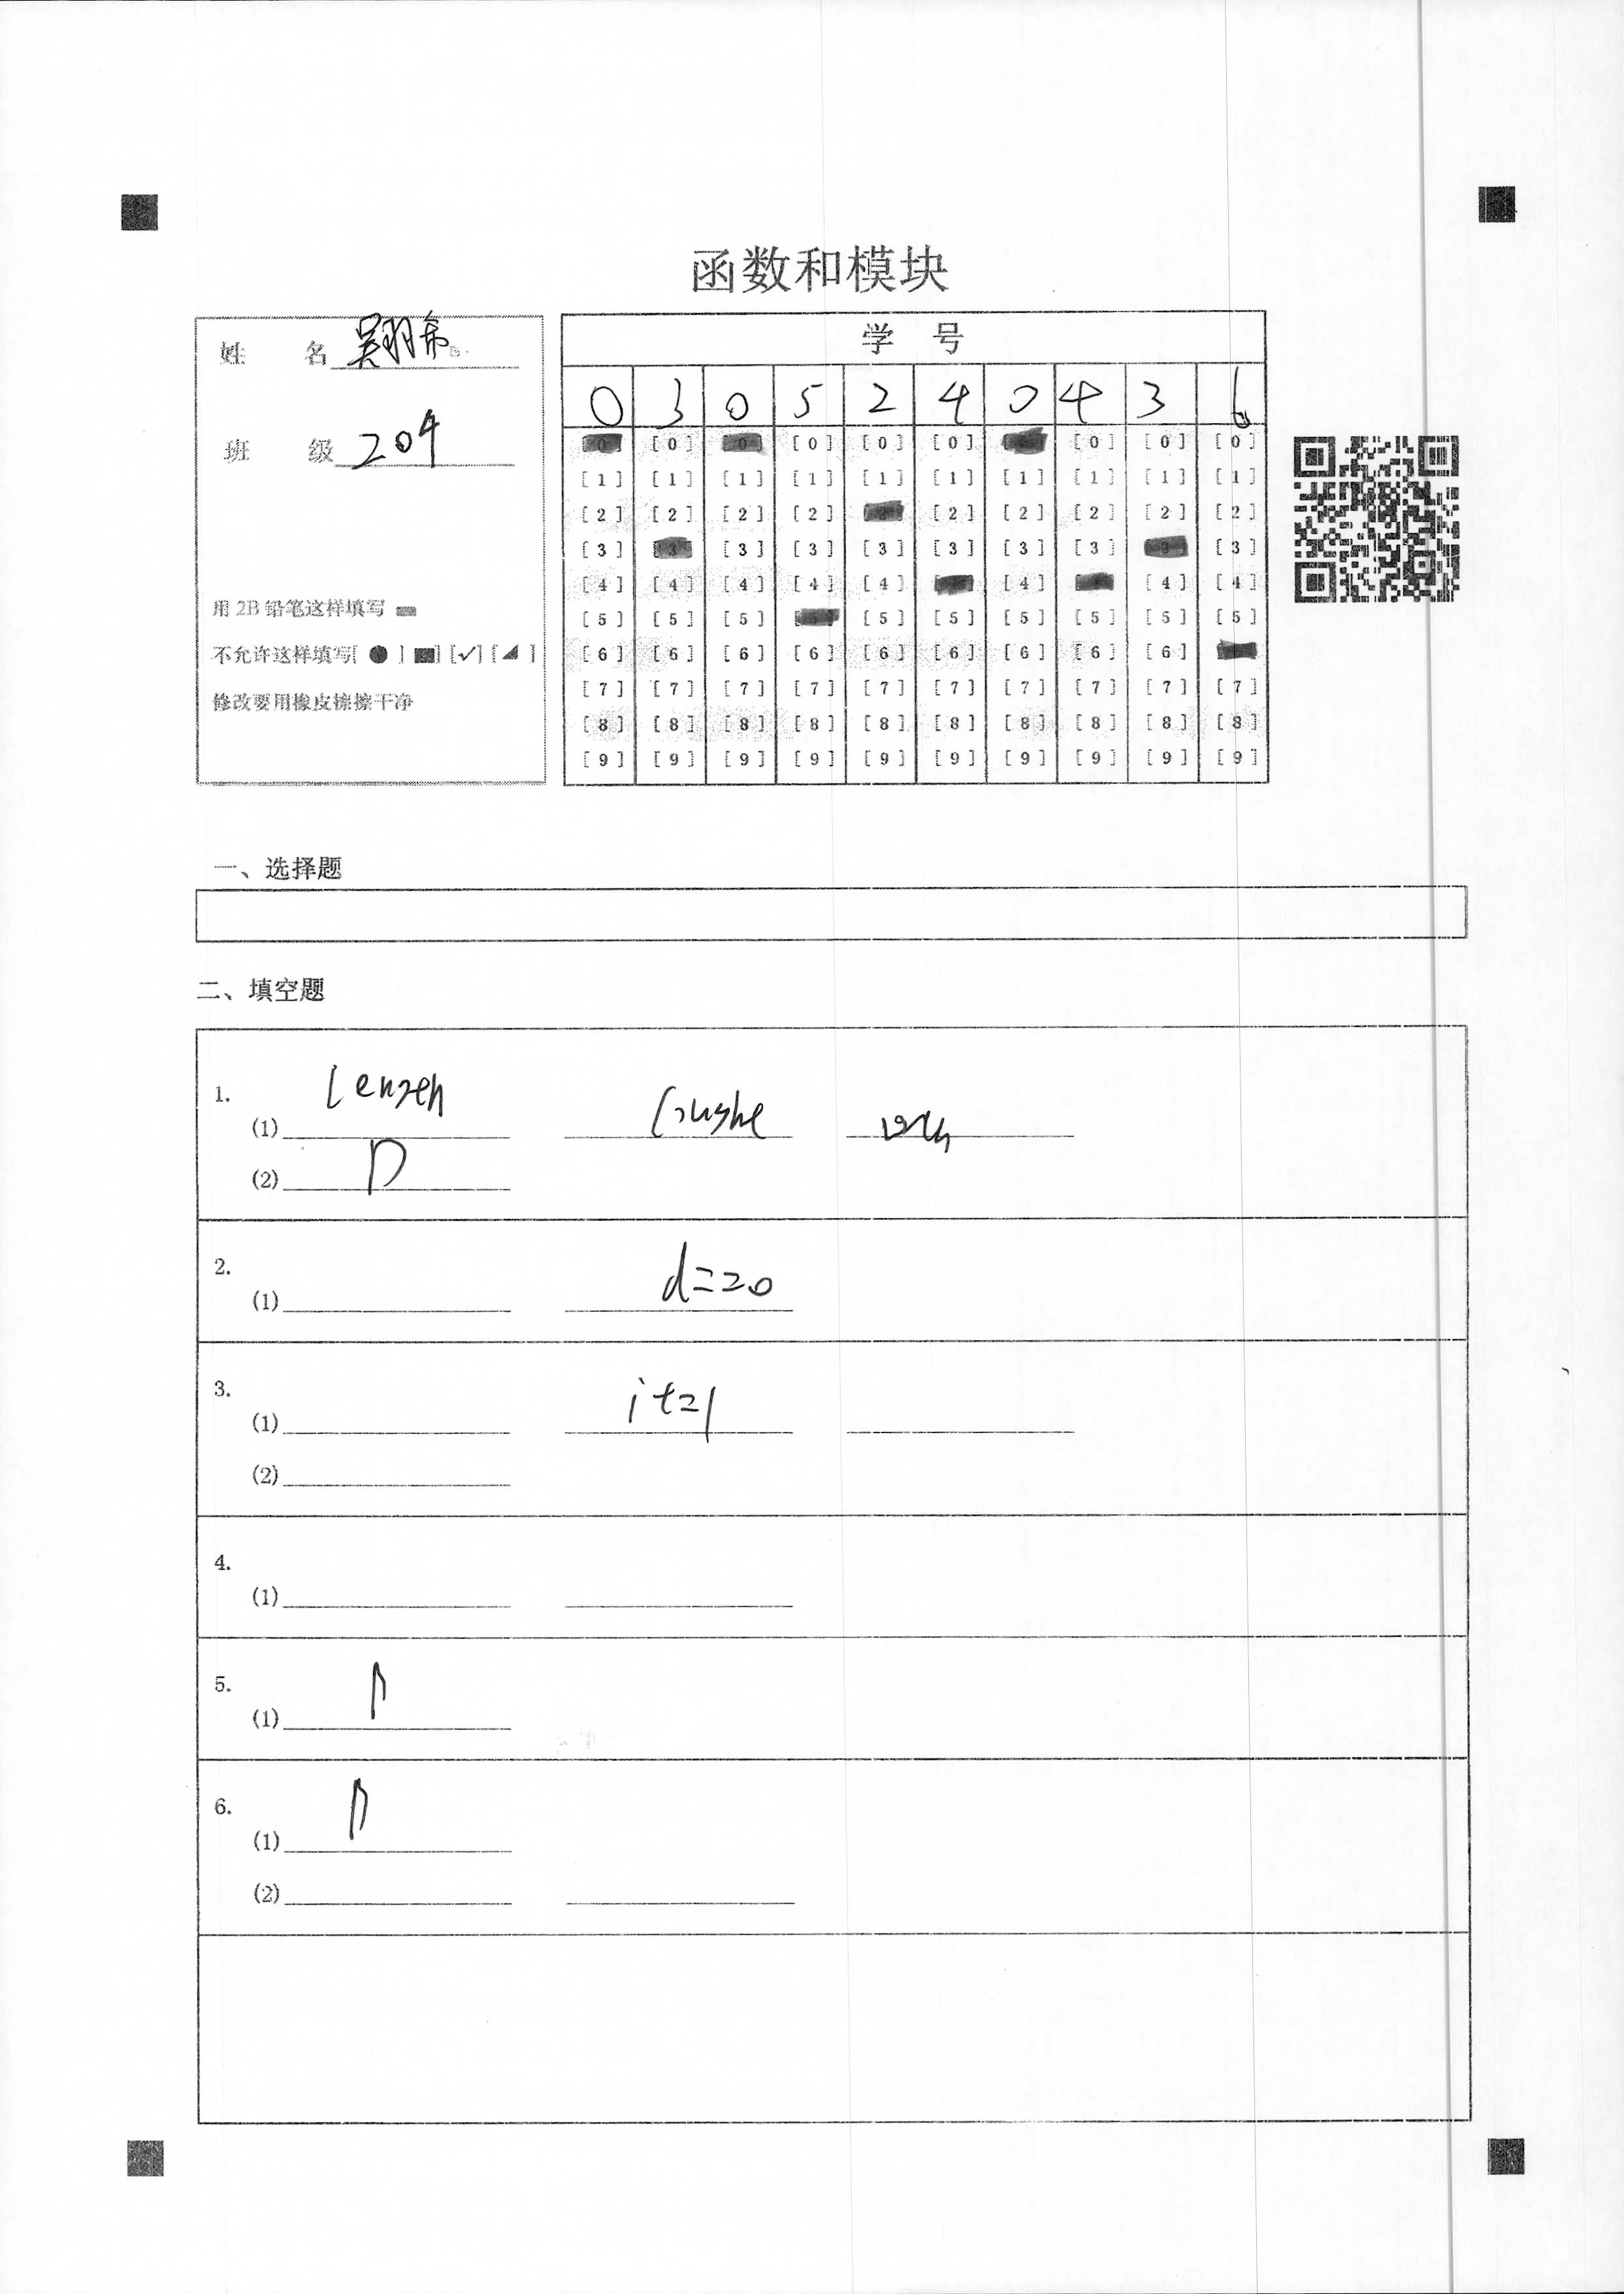 函数和模块
姓 名 吴羽希
班 级 204
用 2B 铅笔这样填写
不允许这样填写[ ● ] [■] [✓] [◢ ]
修改要用橡皮擦擦干净
学 号
0 3 0 5 2 4 0 4 3 6
[0] [0] [0] [0] [0] [0] [0] [0] [0] [0]
[1] [1] [1] [1] [1] [1] [1] [1] [1] [1]
[2] [2] [2] [2] [2] [2] [2] [2] [2] [2]
[3] [3] [3] [3] [3] [3] [3] [3] [3] [3]
[4] [4] [4] [4] [4] [4] [4] [4] [4] [4]
[5] [5] [5] [5] [5] [5] [5] [5] [5] [5]
[6] [6] [6] [6] [6] [6] [6] [6] [6] [6]
[7] [7] [7] [7] [7] [7] [7] [7] [7] [7]
[8] [8] [8] [8] [8] [8] [8] [8] [8] [8]
[9] [9] [9] [9] [9] [9] [9] [9] [9] [9]
一、选择题
二、填空题
1.
(1)
(2) D
2.
(1) d=20
3.
(1) i+=1
(2)
4.
(1)
5.
(1)
6.
(1)
(2)